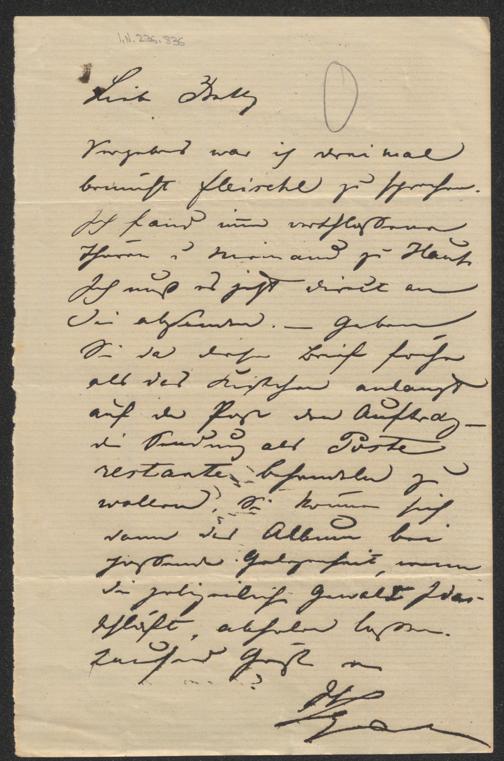 I.N. 236.836
Liebe Betty
Vergebens war ich dreimal
bemüht Fleischl zu sprechen.
Ich fand nur verschlossene
Thüren u Niemand zu Hause
Ich muß es jetzt direct an
Sie absenden. — Geben
Sie da dieser Brief früher
als das Kistchen anlangt
auf der Post den Auftrag
die Sendung als Poste
restante behandeln zu
wollen. Sie können sich
dann das Album bei
passender Gelegenheit, wenn
die polizeiliche Gewalt
schläft, abholen lassen.
Tausend Grüße von